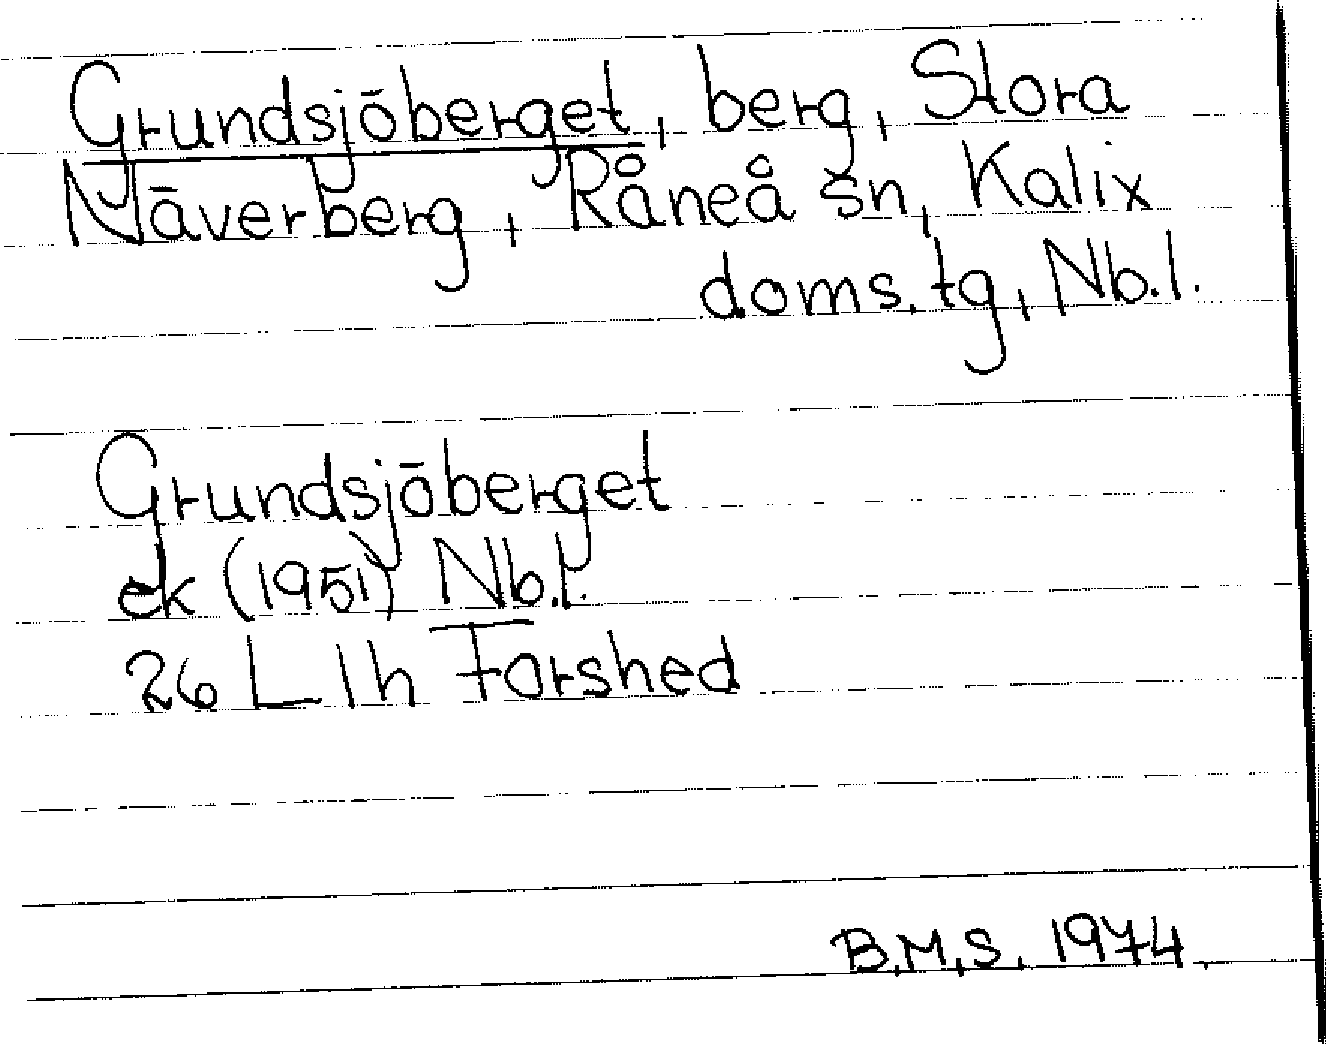 Grundsjöberget, berg, Stora
Näverberg, Råneå sn, Kalix
doms. tg, Nb.l.
Grundsjöberget
ek (1951) Nb.l.
26 L 1h Forshed
B.M.S. 1974.